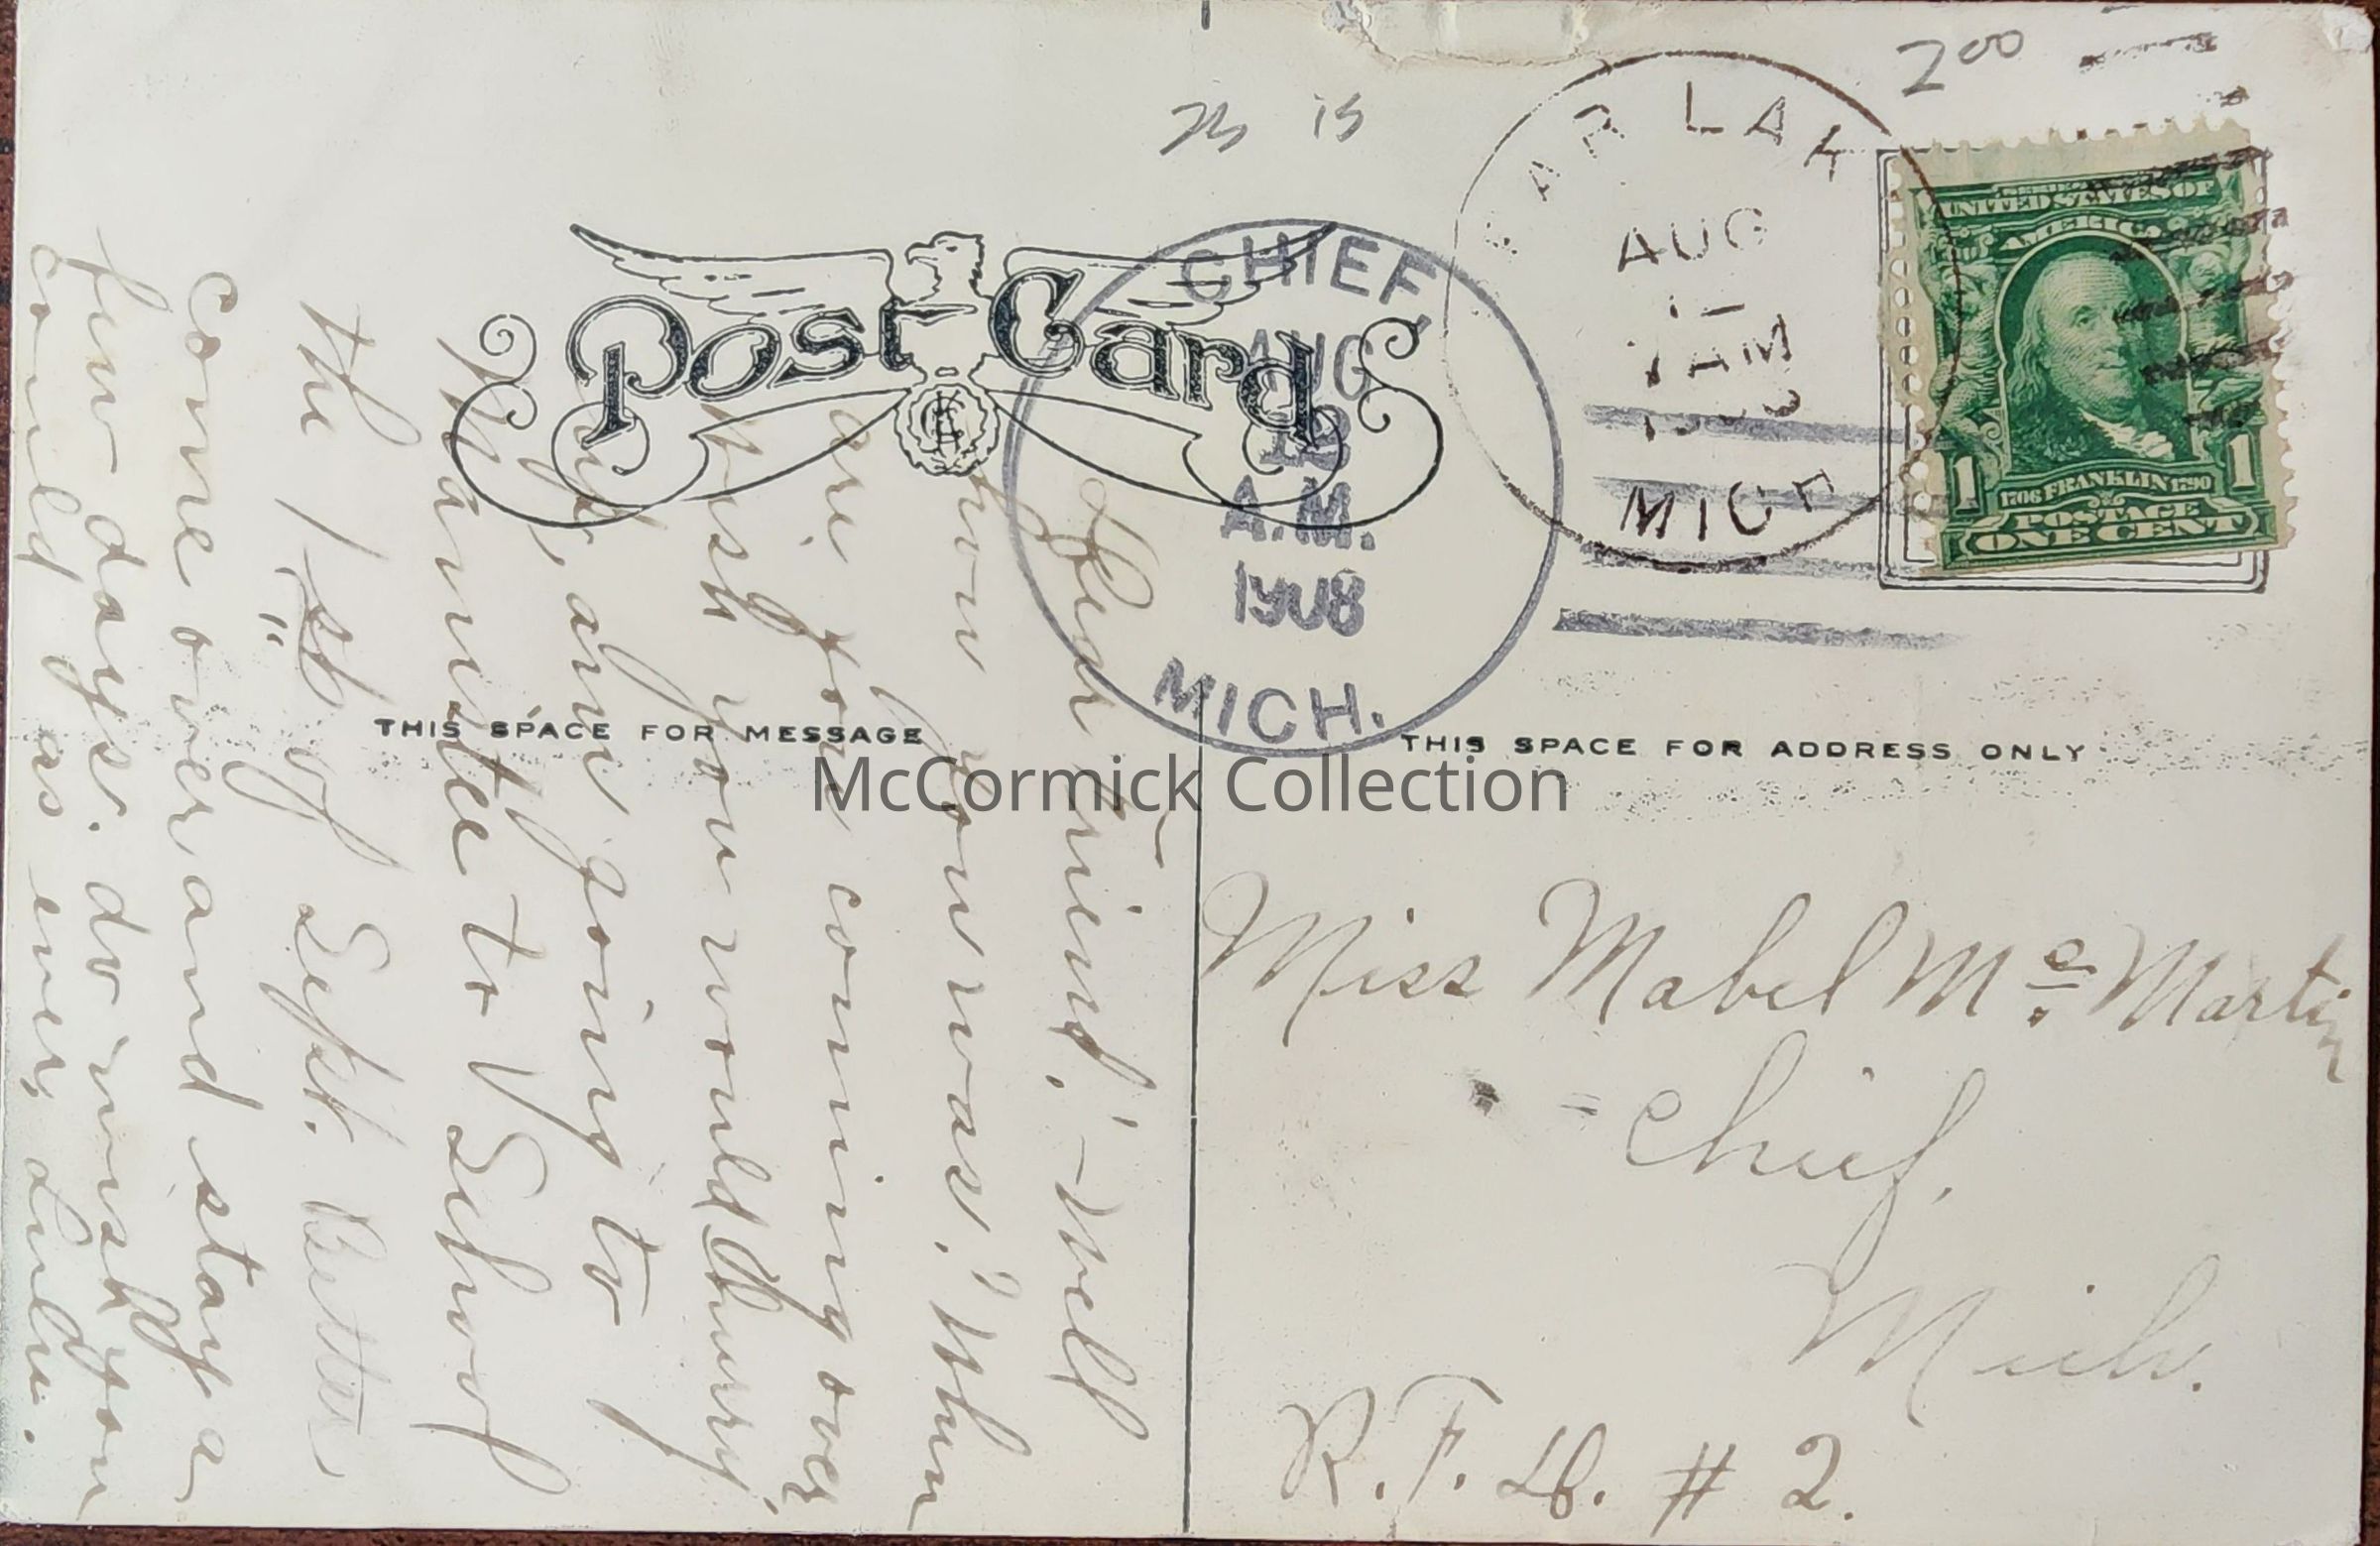 200
Post Card
BEAR LAK
AUG
1 AM
MICH
CHIEF,
AUG
12
A.M.
1908
MICH.
SERIES 1902
UNITED STATES OF
AMERICA
1 1
1706 FRANKLIN 1790
POSTAGE
ONE CENT
THIS SPACE FOR MESSAGE
THIS SPACE FOR ADDRESS ONLY
McCormick Collection
Dear Friend. - Well
how you was. When
are you coming over
wish you would hurry.
anv going to
Manistee to School
the 1st of Sept. Better
come over and stay a
few days. do wish you
could as ever,
Miss Mabel Mc. Martin
Chief.
Mich.
R.F.D. # 2.